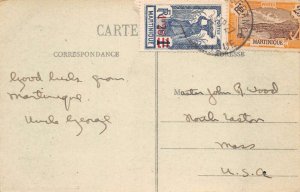 CARTE
CORRESPONDANCE
ADRESSE
Good luck from
Martinique
Uncle George
Master John R Wood
North Easton
Mass
U.S.A
MARTINIQUE
MARTINIQUE